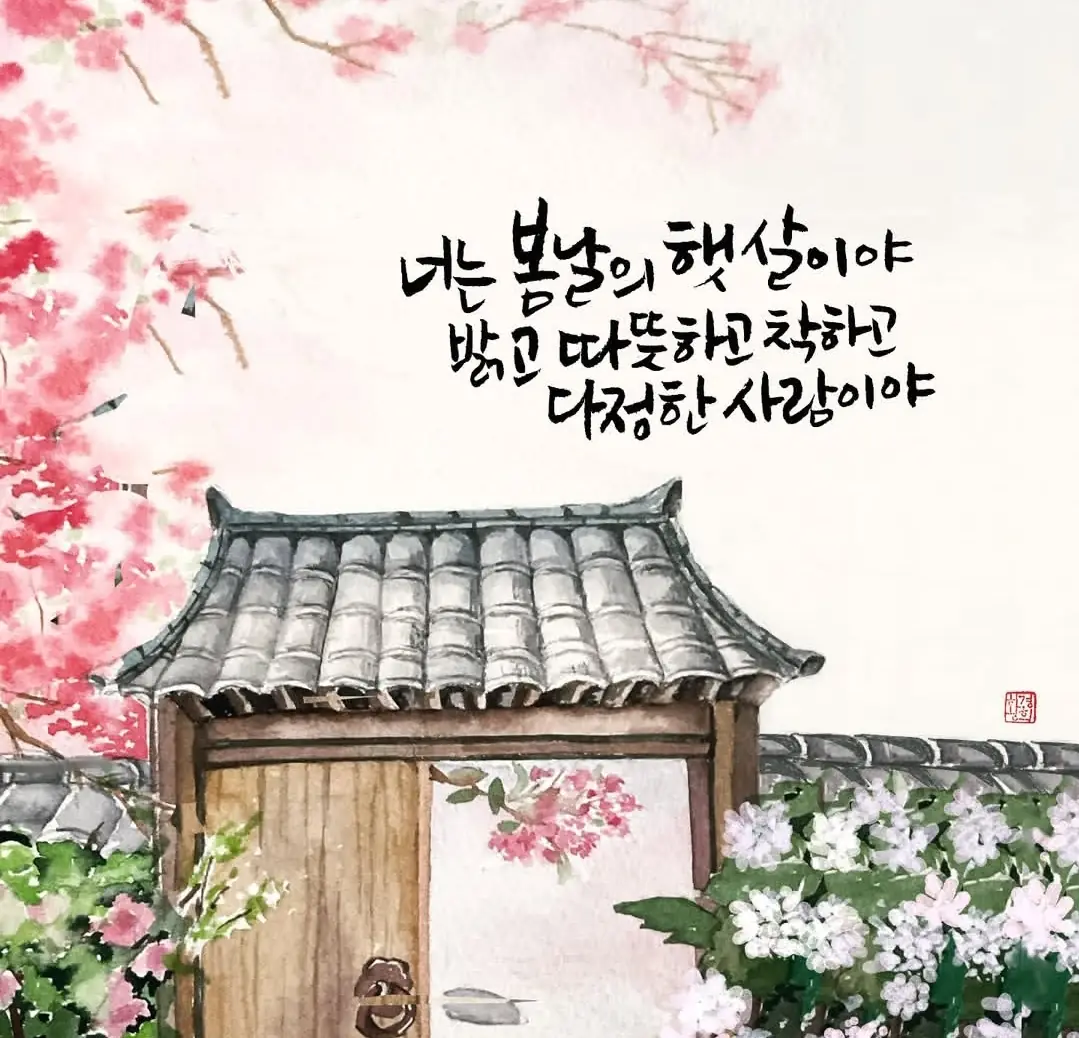 너는 봄날의 햇살이야
밝고 따뜻하고 착하고
다정한 사람이야